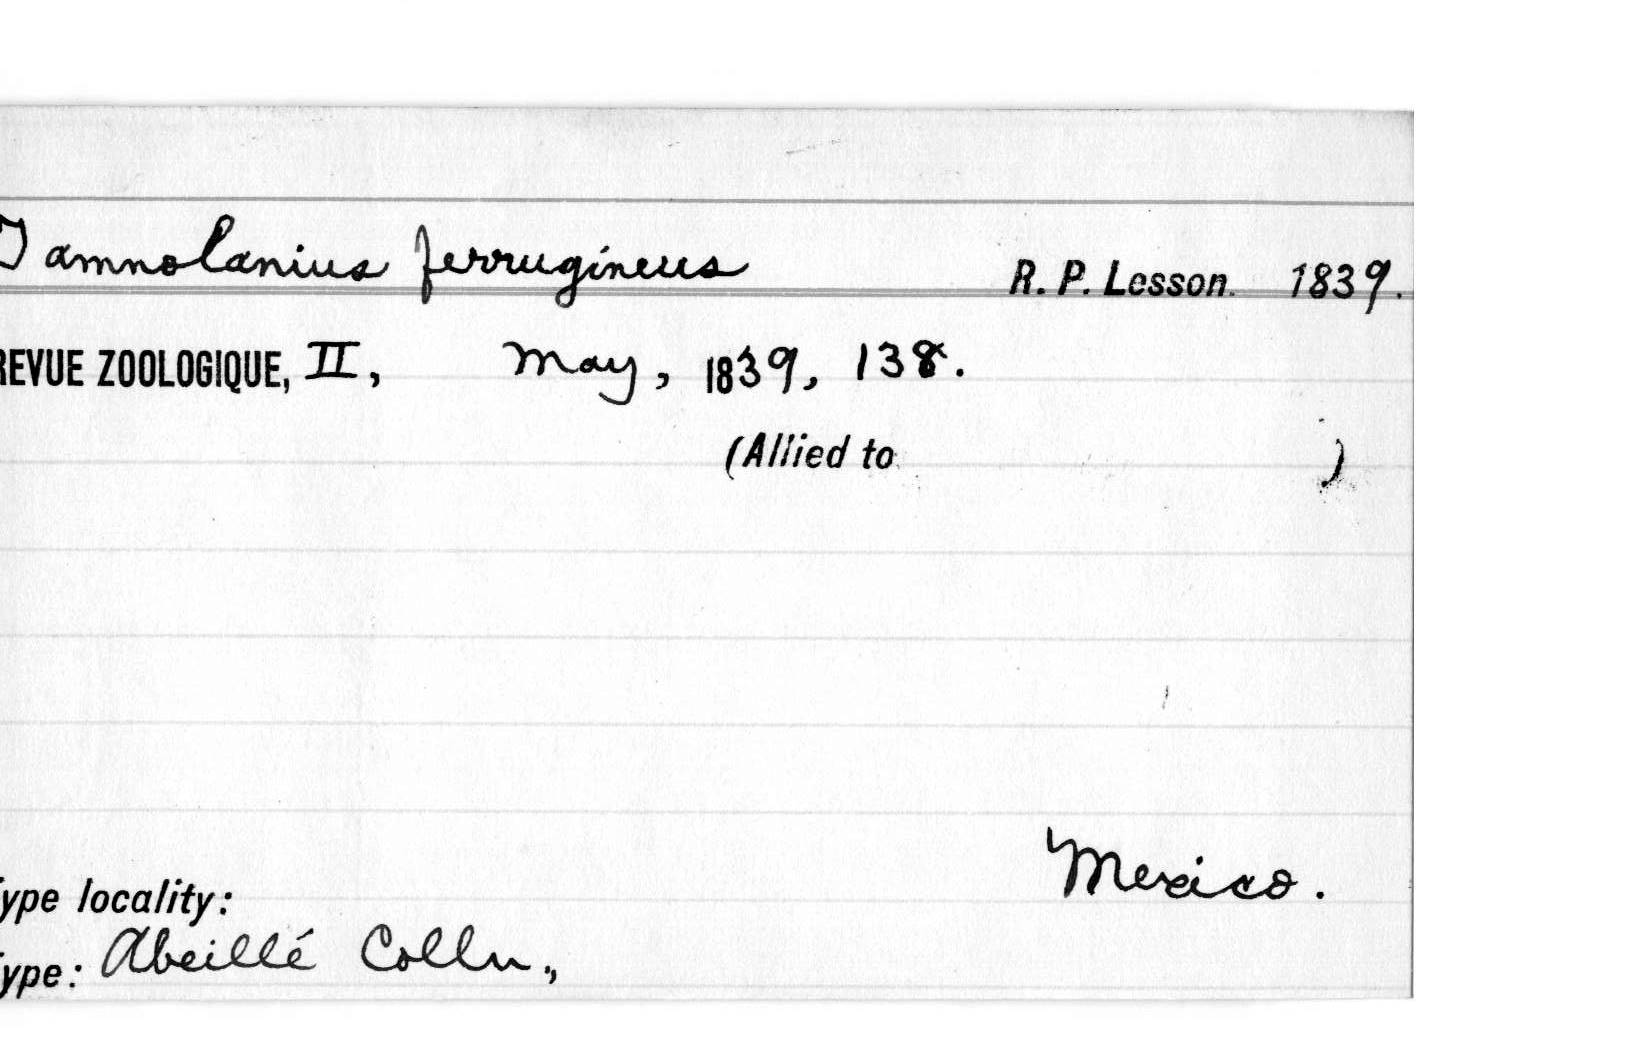 Tamnolanius ferrugineus R. P. Lesson. 1839.
REVUE ZOOLOGIQUE, II, May, 1839, 138.
(Allied to )
Mexico.
ype locality:
ype: Abeillé Colln.,